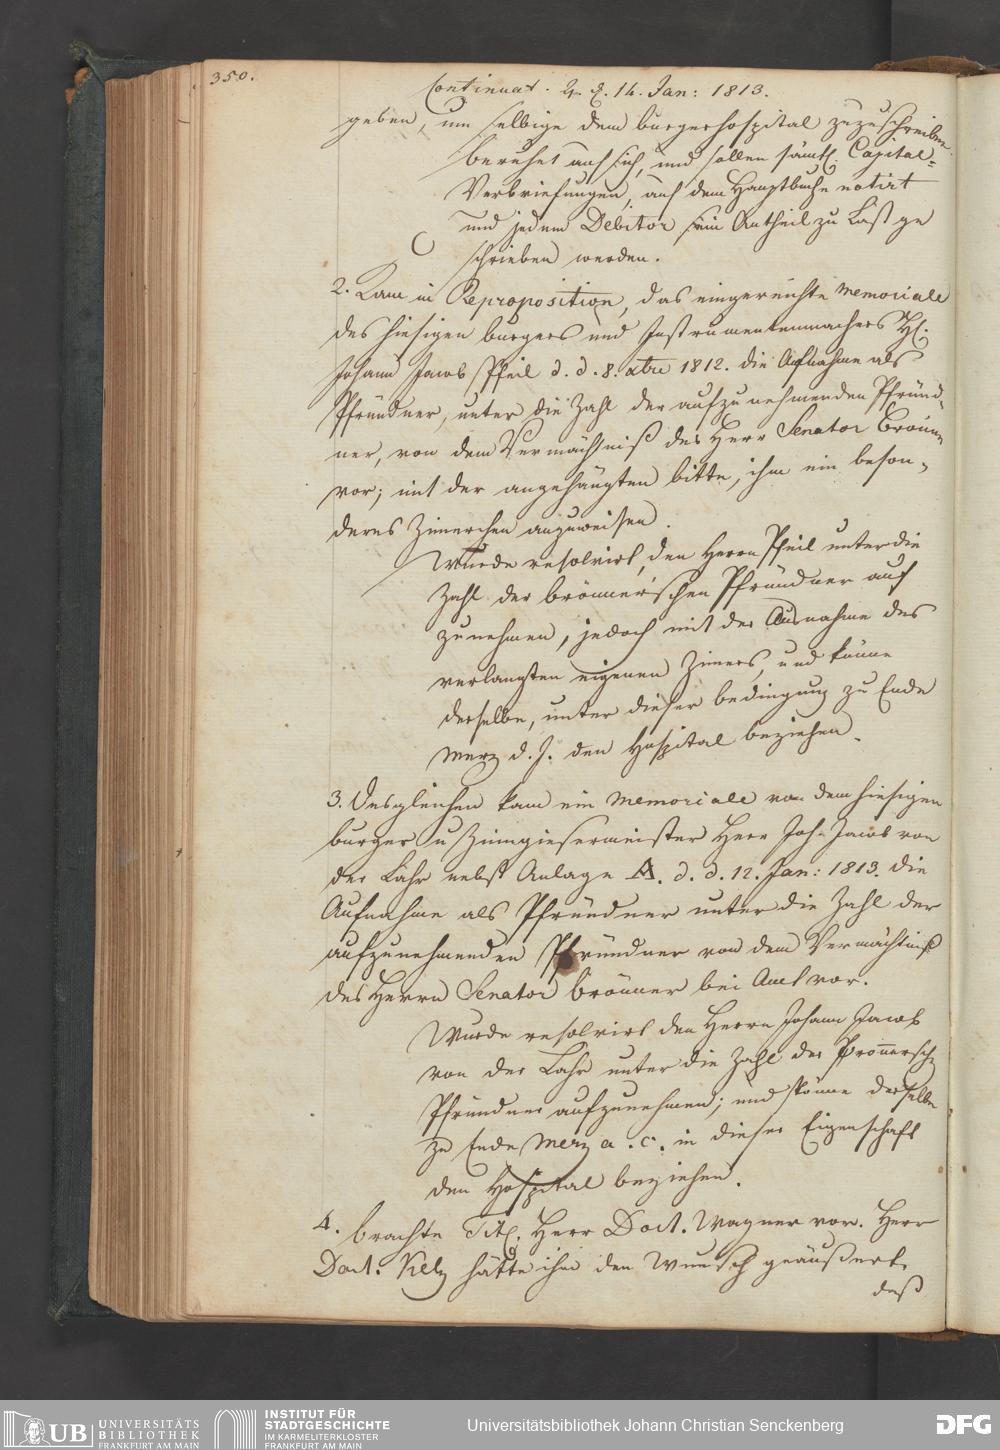 350.
Continuat. d. 14. Jan: 1813.
geben, um selbige dem burgerhospital zuzuschreiben
beruhet auf sich, und sollen sämtl. Capital-
Verbriefungen, auf dem Hauptbuche notirt
und jedem Debitor sein Antheil zu Last ge
schrieben werden.
2. Kam in Reproposition, das eingereichte Memoriale
des hiesigen burgers und Instrumentenmachers H.
Johann Jacob Pfeil d. d. 8. xbre 1812. die Aufnahme als
Pfründner, unter die Zahl der aufzunehmenden Pfründ-
ner, von dem Vermächtniß des Herr Senator Brönner
vor; mit der angehängten bitte, ihm ein beson-
deres Zimerchen anzuweisen.
Wurde resolvirt, den Herrn Pfeil unter die
Zahl der brönner'schen Pfründner auf
zunehmen, jedoch mit der Ausnahme des
verlangten eigenen Zimers, und könne
derselbe, unter dieser bedingung zu Ende
Merz d. J. den Hospital beziehen.
3. Desgleichen kam ein Memoriale von dem hiesigen
burger u Zinngiesermeister Herr Joh. Jacob von
der Lahr nebst Anlage A. d. d. 12. Jan: 1813. die
Aufnahme als Pfründner unter die Zahl der
aufzunehmenden Pfründner von dem Vermächtniß
des Herrn Senator brönner bei Amt vor.
Wurde resolvirt den Herrn Johann Jacob
von der Lahr unter die Zahl der Prönnersch.
Pfründner aufzunehmen; und könne derselbe
zu Ende Merz a. c. in dieser Eigenschaft
den Hospital beziehen.
4. brachte Titl. Herr Doct. Wagner vor. Herr
Doct. Kelz hätte ihm den Wunsch geäußert,
daß
UB UNIVERSITÄTS
BIBLIOTHEK
FRANKFURT AM MAIN
INSTITUT FÜR
STADTGESCHICHTE
IM KARMELITERKLOSTER
FRANKFURT AM MAIN
Universitätsbibliothek Johann Christian Senckenberg
DFG